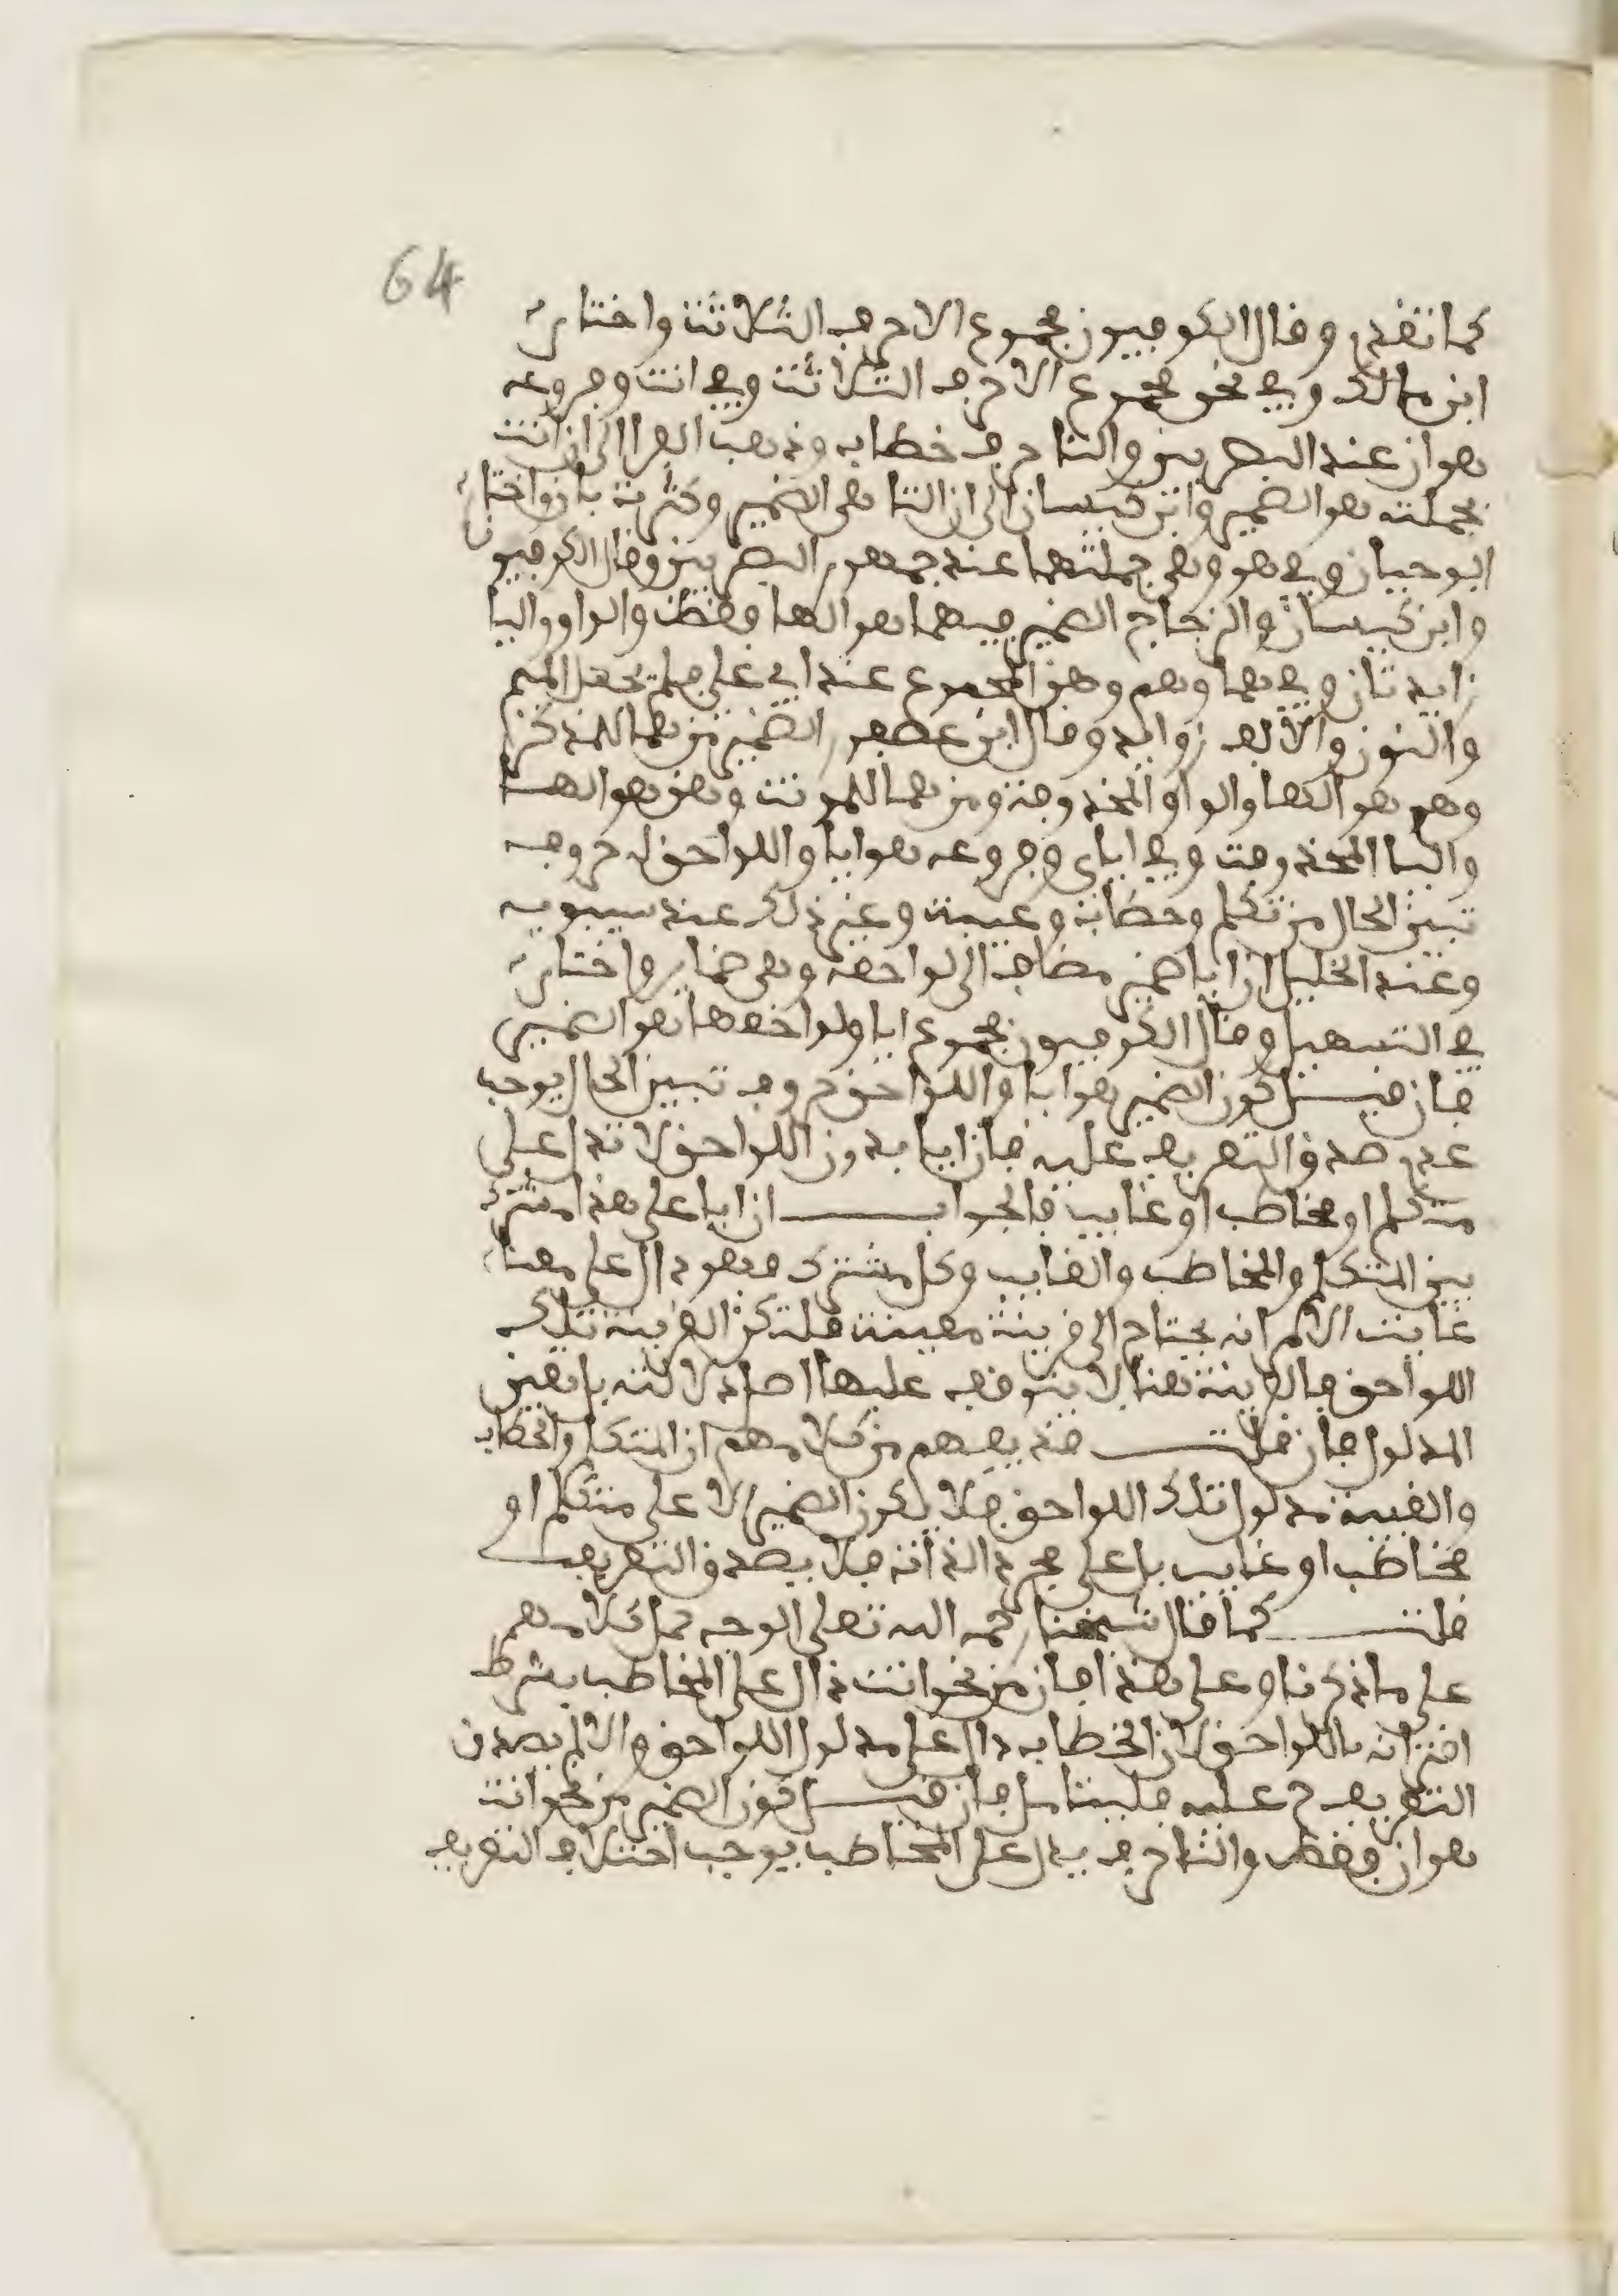 64
كما تقدم وقال الكوفيون مجموع الاحرف الثلاثة واختاره
ابن مالك وفي نحن مجموع الاحرف الثلاثة وفي انت وفروعه
هو ان عند البصريين والتا حرف خطاب وذهب الفرا الى ان انت
بجملته هو الضمير وابن كيسان الى ان التا هي الضمير وكثرت بان واختاره
ابو حيان وفي هو وهي جملتهما عند جمهور البصريين وقال الكوفيون
وابن كيسان والزجاج الضمير فيهما هو الها فقط والواو واليا
زايدتان وفي هما وهم وهن المجموع عند ابي علي فلم تجعل الميم
والنون والالف زوايد وقال ابن عصفور الضمير من هما للمذكر
وهم هو الها والواو المحذوفة ومن هما للمونث وهن هو الها
واليا المحذوفة وفي اياي وفروعه هو ايا واللواحق له حروف
تبين الحال من تكلم وخطاب وغيبة وغير ذلك عند سيبويه
وعند الخليل ان ايا ضمير مضاف الى لواحقه وهي ضماير واختاره
في التسهيل وقال الكوفيون مجموع ايا ولواحقها هو الضمير
فان قيل كون الضمير هو ايا واللواحق حروف تبيين الحال يوجب
عدم صدق التعريف عليه فان ايا بدون اللواحق لا تدل على
متكلم او مخاطب او غايب فالجواب ان ايا على هذا مشترك
بين المتكلم والمخاطب والغايب وكل مشترك فهو دال على معناه
غاية الامر انه يحتاج الى قرينة معينة فلتكن القرينة تلك
اللواحق فالقرينة هنا لا يتوقف عليها اصل دلالته بل تعين
المدلول فان قلت قد يفهم من كلامهم ان المتكلم والخطاب
والغيبة مدلول تلك اللواحق فلا يكون الضمير دالا على متكلم او
مخاطب او غايب بل على مجرد الذات فلا يصدق التعريف
قلت كما قال شيخنا رحمه الله تعلى الوجه حمل كلامهم
على ما ذكرنا وعلى هذا فان من نحو انت دال على المخاطب بشرط
اقترانه باللواحق لان الخطاب دال على مدلول اللواحق والا لم يصدق
التعريف ح عليه فليتامل فان قيل كون الضمير من نحو انت
هو ان فقط والتا حرف يدل على المخاطب يوجب اختلاف التعريف